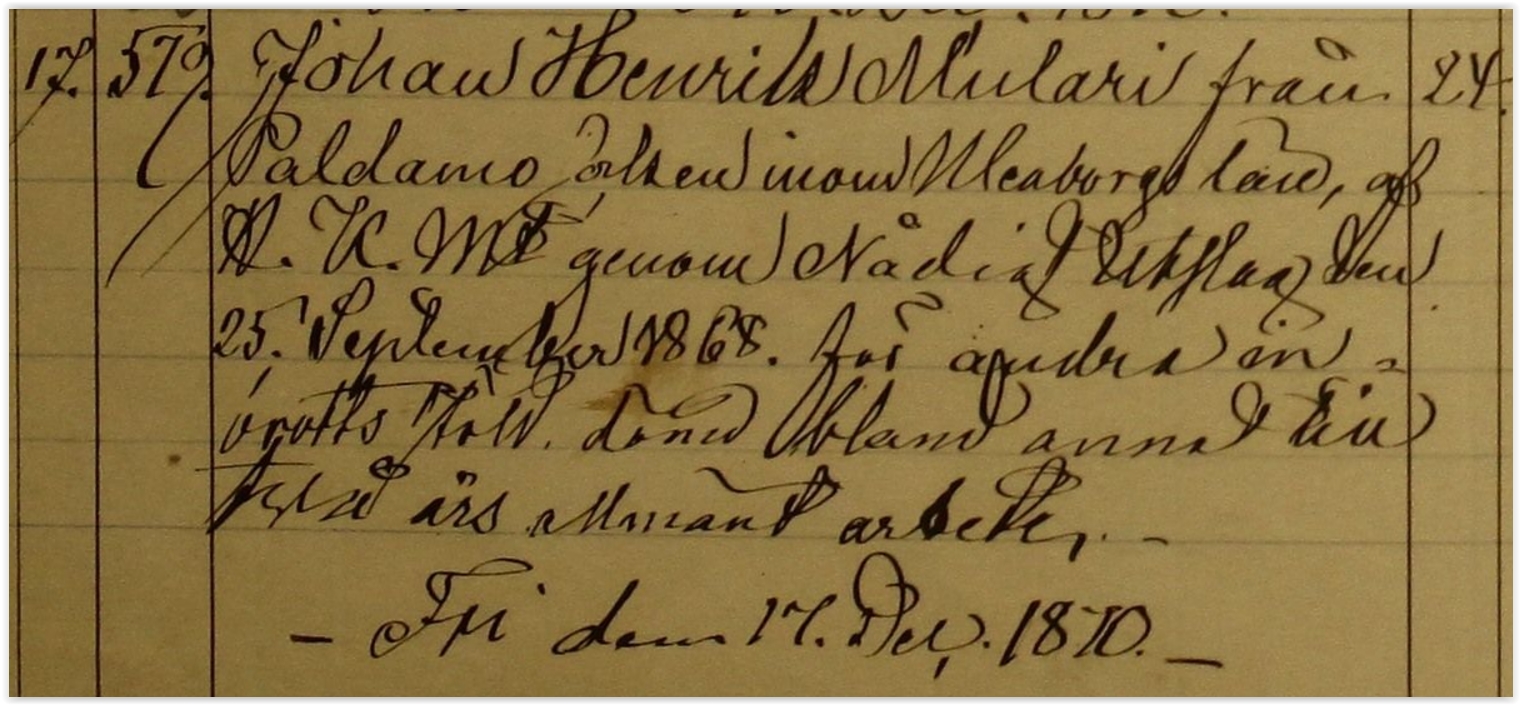 17. 579. Johan Henrik Mulari från 24.
Paldamo socken inom Uleaborgs län, af
H. K. Mt genom Nådigt Utslag den
25. September 1868. för andra in-
brotts stöld. dömd bland annat till
två års allmänt arbete. -
- Fri den 17. Dec. 1870. -